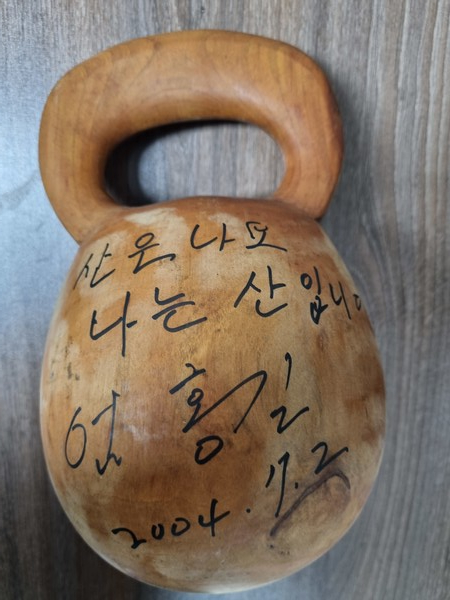 산은 나또
나는 산입니다
엄홍길
2004. 11. 2